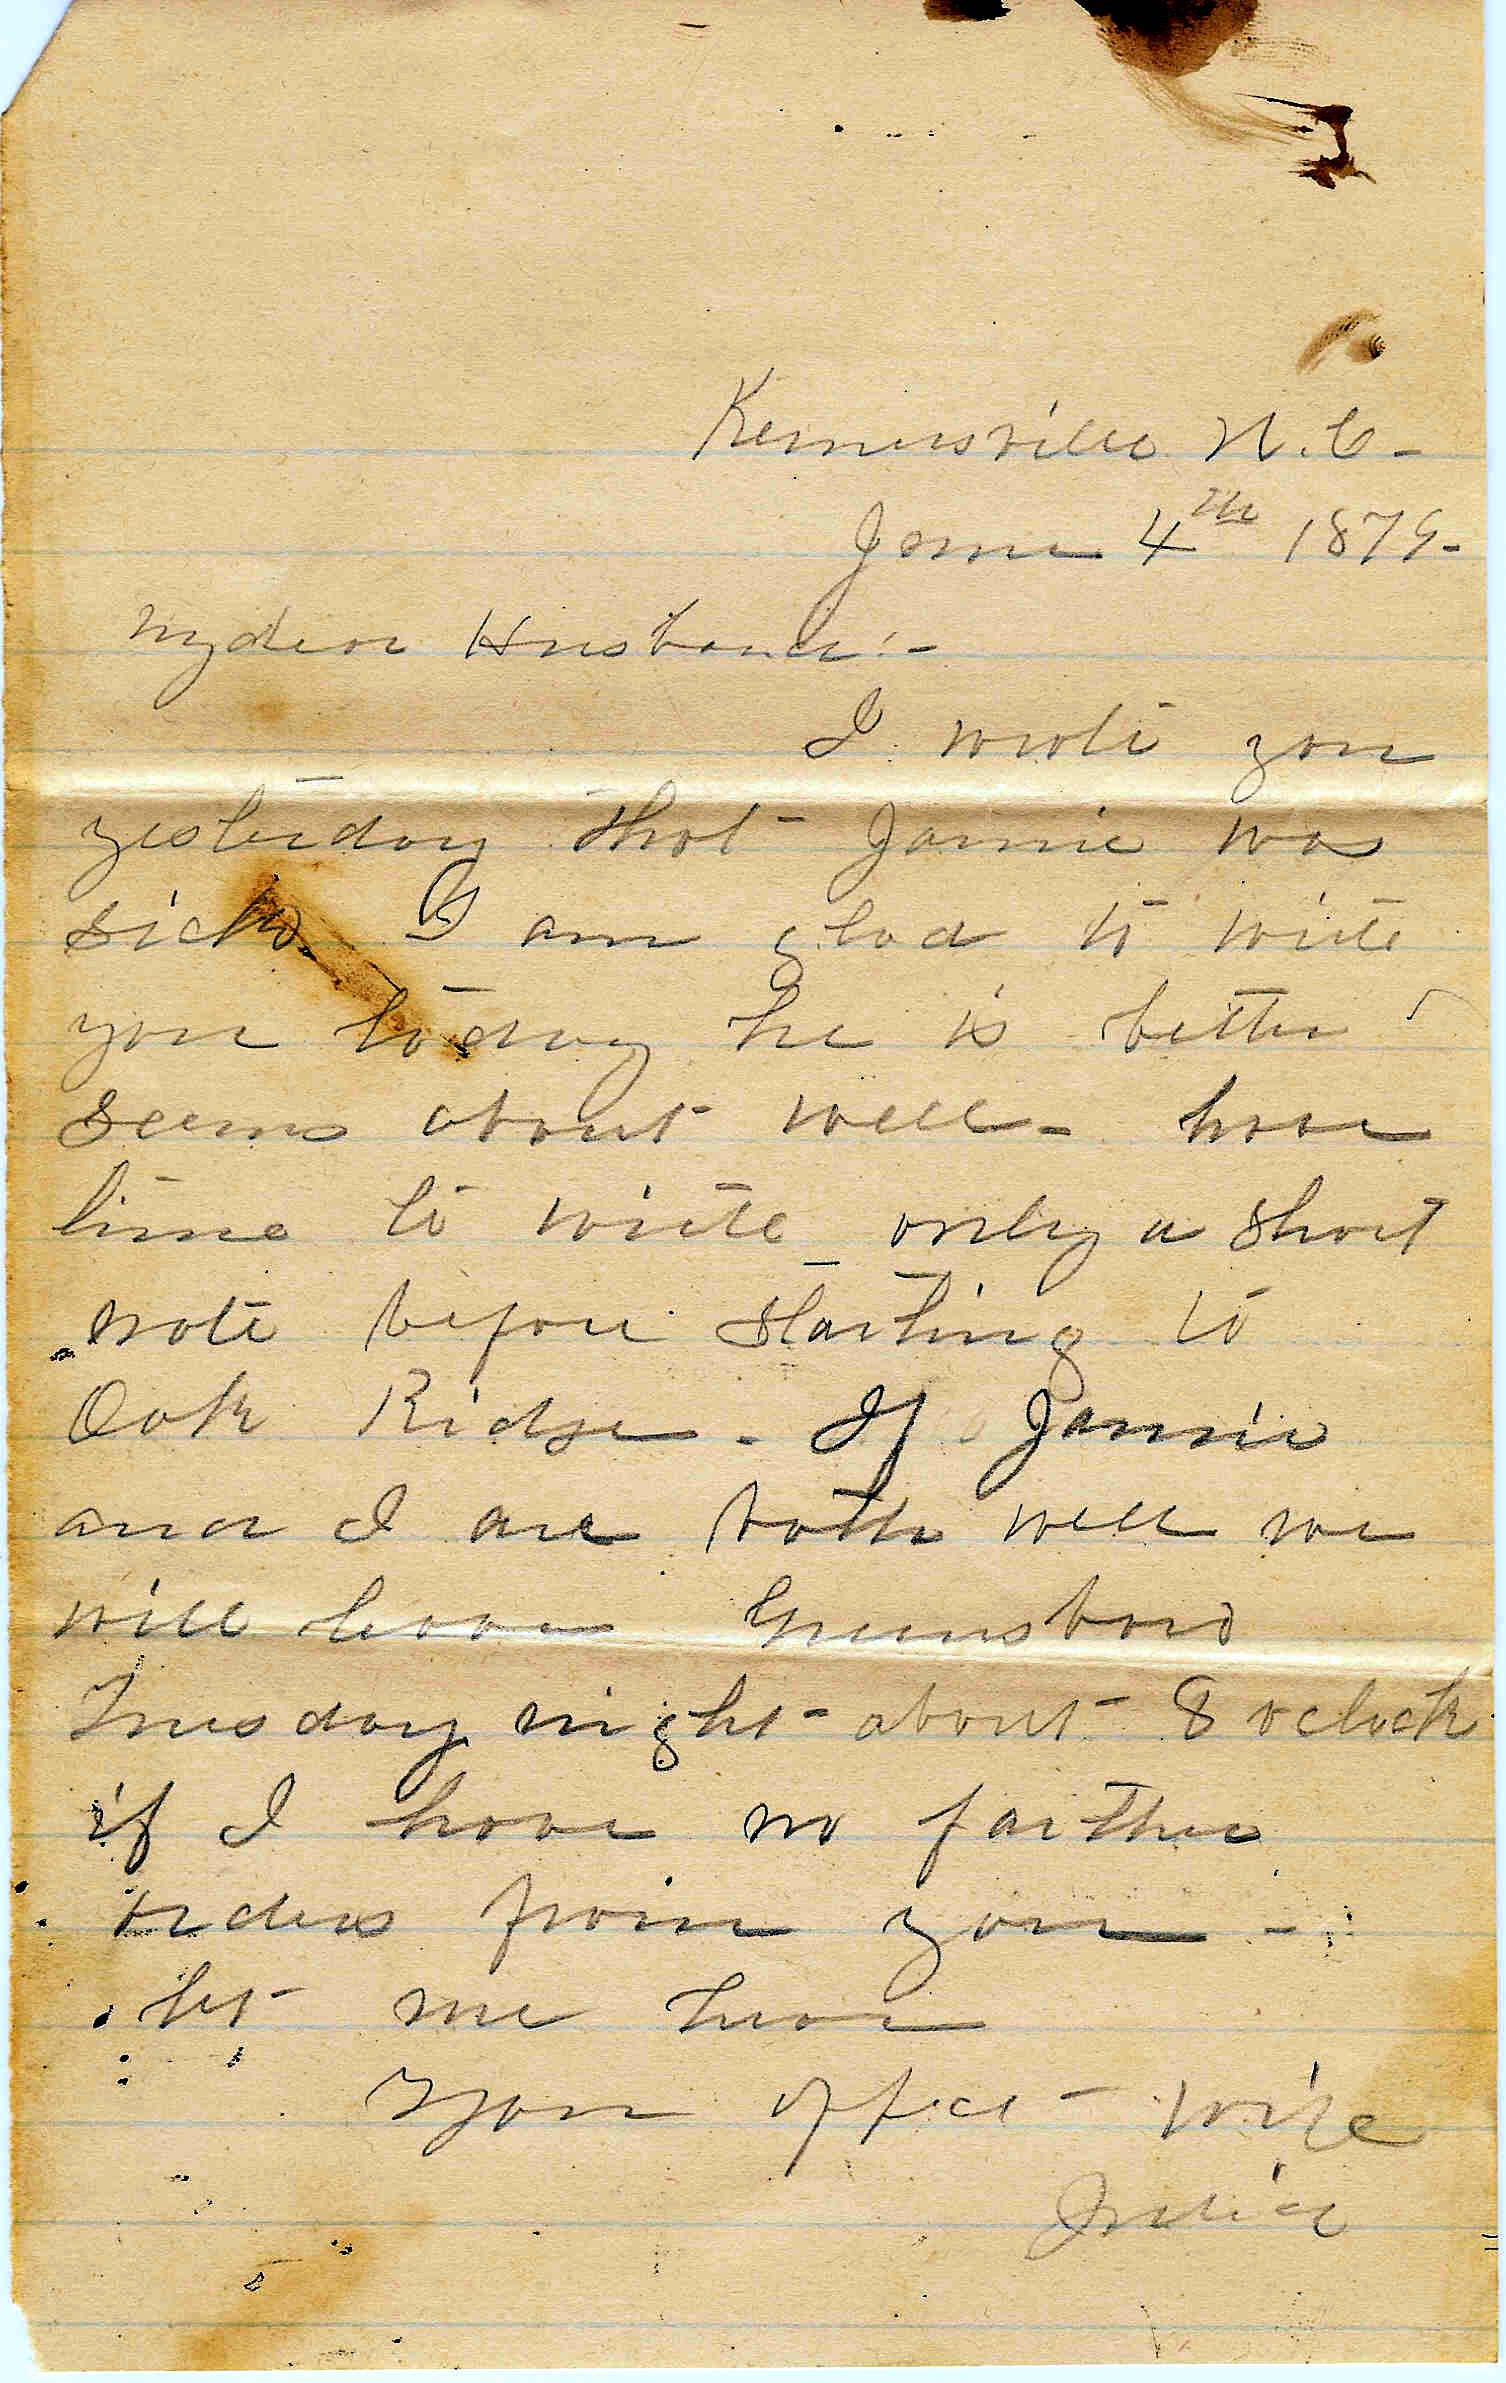 Kernersville N.C-
June 4th 1879-
My dear Husband:-
I wrote you
yesterday that Jamie was
sick. I am glad to write
you to day he is better
seems about well- have
time to write only a short
note before starting to
Oak Ridge- If Jamie
and I are both well we
will leave Greensboro
Tuesday night- about 8 oclock
if I have no farther
orders from you-
let me hear
Your affec- wife